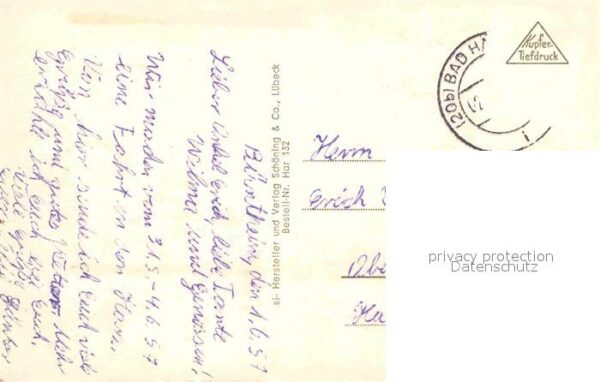 den 1.6.57
Lieber Onkel Erich, liebe Tante
Wilma und
Wir machen vom 31.5 - 4.6.57
eine Fahrt in den Harz.
Von hier sende ich Euch viele
Grüße und
erzähle ich euch bei Euch.
Viele Grüße
si- Hersteller und Verlag Schöning & Co., Lübeck
Bestell-Nr. Har 132
Kupfer-
Tiefdruck
(20b) BAD HA
Herrn
Erich
Obe
Ha
privacy protection
Datenschutz